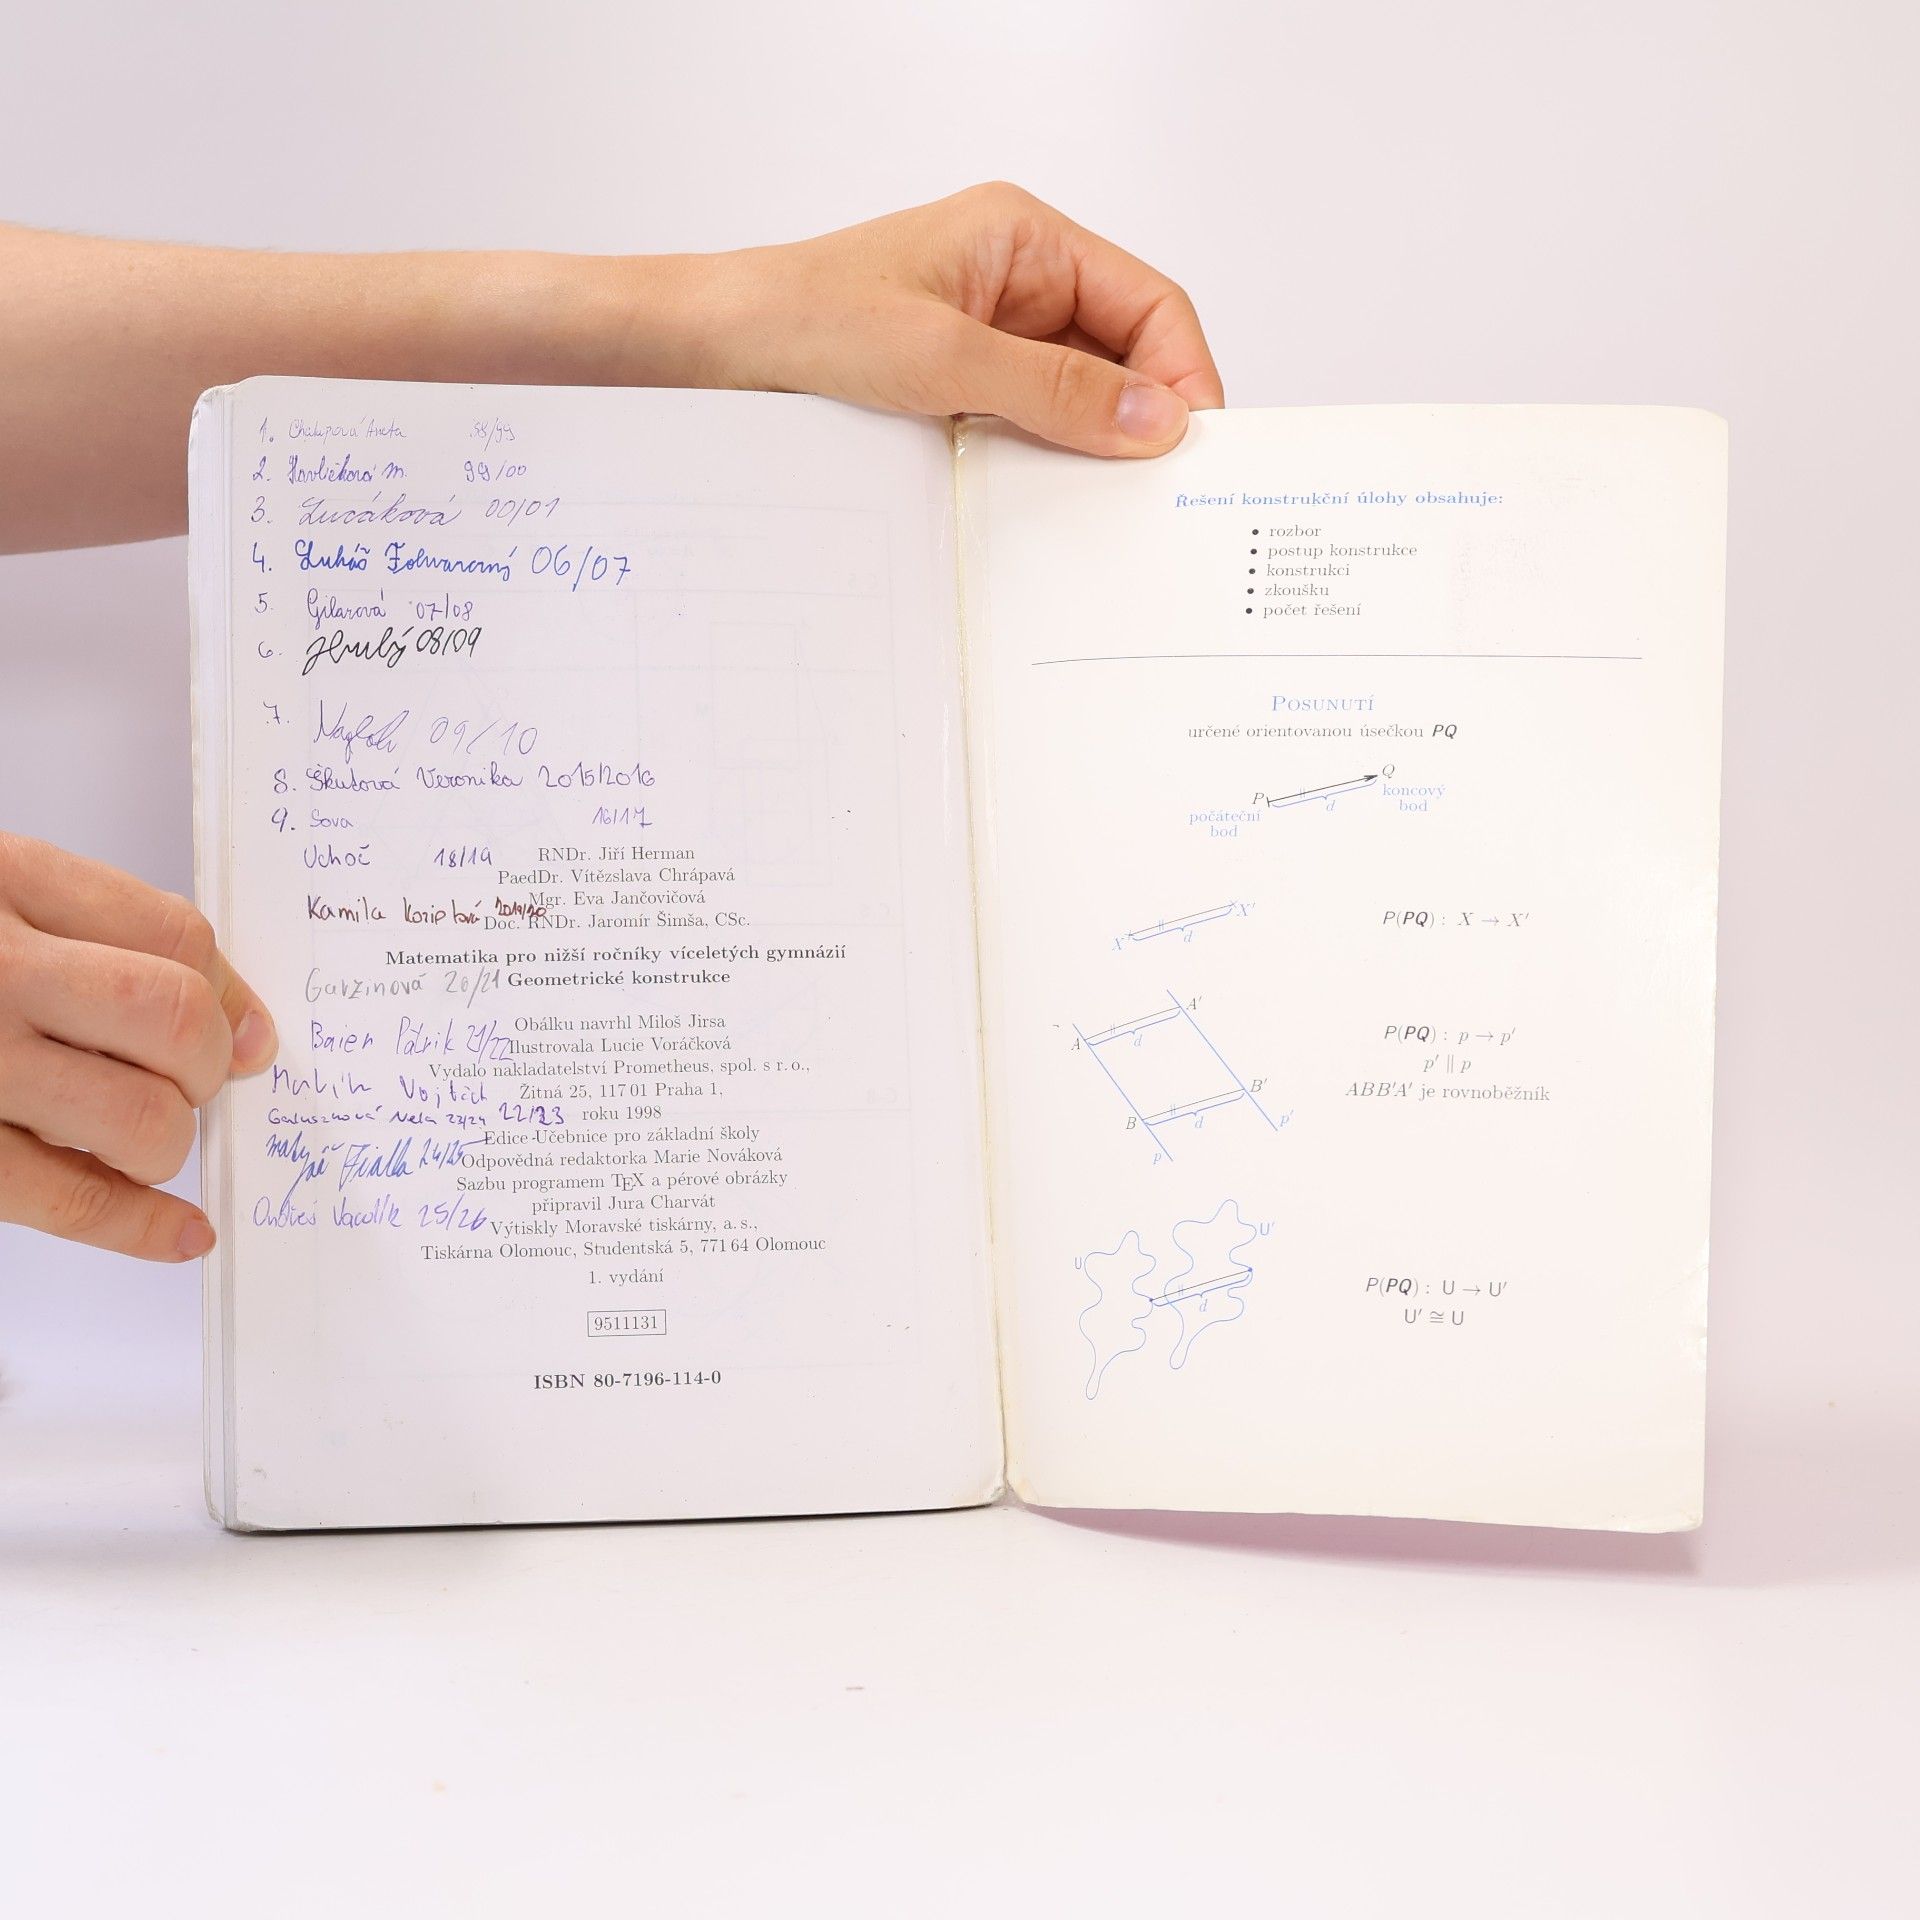 1. Chalupová Aneta 98/99
2. Havlíčková M. 99/00
3. 00/01
4. Lukáš 06/07
5. Gilarová 07/08
6. Hrubý 08/09
7. 09/10
8. Škutová Veronika 2015/2016
9. Sova 16/17
Uchoč 18/19
RNDr. Jiří Herman
PaedDr. Vítězslava Chrápavá
Mgr. Eva Jančovičová
Kamila 2019/20
Doc. RNDr. Jaromír Šimša, CSc.
Matematika pro nižší ročníky víceletých gymnázií
Garzinová 20/21
Geometrické konstrukce
Obálku navrhl Miloš Jirsa
Baier Patrik 21/22
Ilustrovala Lucie Voráčková
Vydalo nakladatelství Prometheus, spol. s r. o.,
Vojtěch
Žitná 25, 117 01 Praha 1,
Nela 23/24 22/23
roku 1998
Edice Učebnice pro základní školy
Fialka 24/25
Odpovědná redaktorka Marie Nováková
Sazbu programem TEX a pérové obrázky
připravil Jura Charvát
Ondřej Vacolík 25/26
Výtiskly Moravské tiskárny, a. s.,
Tiskárna Olomouc, Studentská 5, 771 64 Olomouc
1. vydání
9511131
ISBN 80-7196-114-0
Řešení konstrukční úlohy obsahuje:
• rozbor
• postup konstrukce
• konstrukci
• zkoušku
• počet řešení
POSUNUTÍ
určené orientovanou úsečkou PQ
Q
P
d
koncový
bod
počáteční
bod
X'
X
d
P(PQ) : X → X'
A'
A
d
P(PQ) : p → p'
p' ∥ p
ABB'A' je rovnoběžník
B'
B
d
p'
p
U'
U
d
P(PQ) : U → U'
U' ≅ U